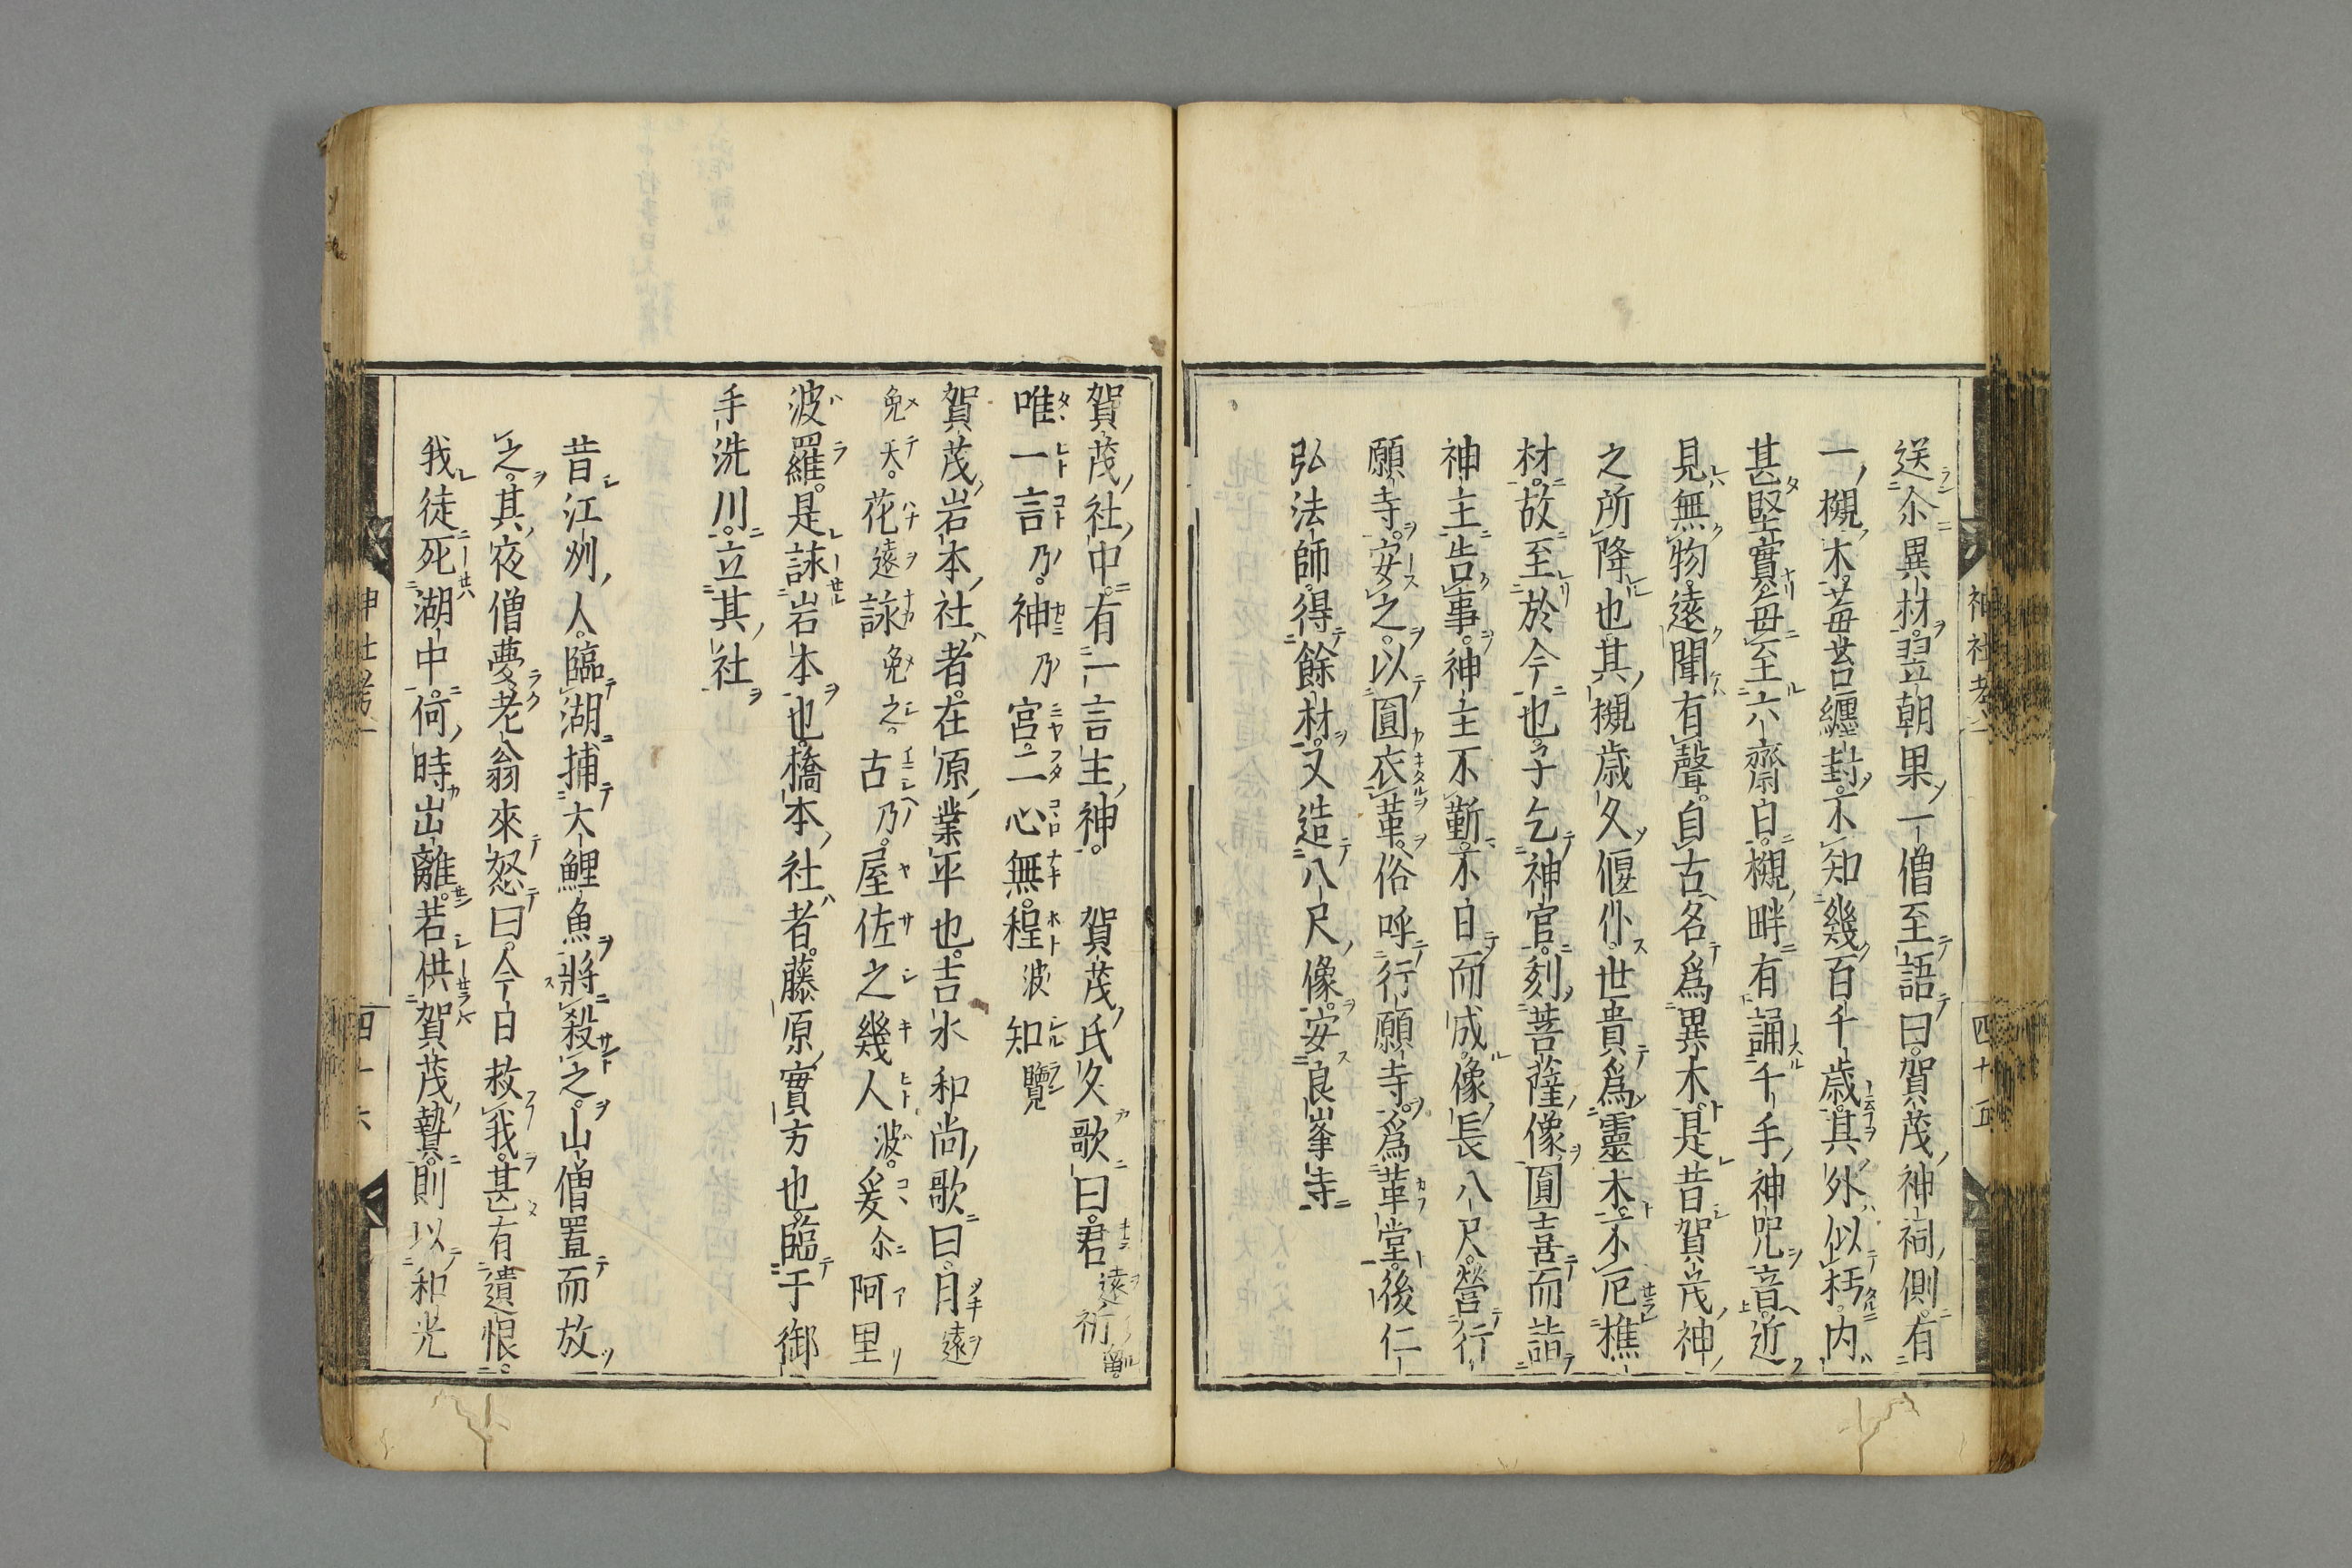 送尒異材翌朝果一僧至語曰賀茂神祠側有
一槻木莓苔纏封不知幾百千歳其外似朽内
甚堅實毎至六齋日槻畔有誦千手神咒音近
見無物遠聞有聲自古名爲異木是昔賀茂神
之所降也其槻歳久偃仆世貴爲靈木不厄樵
材故至於今也子乞神官刻菩薩像圓喜而詣
神主告事神主不靳不日而成像長八尺營行
願寺安之以圓衣革俗呼行願寺爲革堂後仁
弘法師得餘材又造八尺像安良峯寺
神社考一
四十五
賀茂社中有一言主神 賀茂氏久歌曰君遠祈留
唯一言乃神乃宮二心無程波知覽
賀茂岩本社者在原業平也吉水和尚歌曰月遠
免天花遠詠免之古乃屋佐之幾人波爰尒阿里
波羅是詠岩本也橋本社者藤原實方也臨于御
手洗川立其社
昔江州人臨湖捕大鯉魚將殺之山僧置而放
之其夜僧夢老翁來怒曰今日救我甚有遺恨
我徒死湖中何時出離若供賀茂贄則以和光
神社考一
四十六